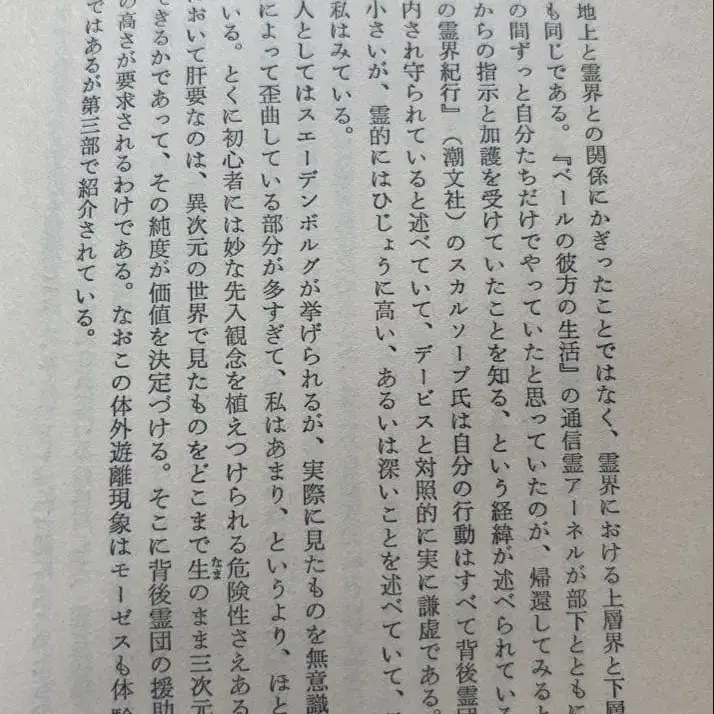 地上と霊界との関係にかぎったことではなく、霊界における上層界と下層
も同じである。『ベールの彼方の生活』の通信霊アーネルが部下とともに
の間ずっと自分たちだけでやっていたと思っていたのが、帰還してみると
からの指示と加護を受けていたことを知る、という経緯が述べられている
の霊界紀行』（潮文社）のスカルソープ氏は自分の行動はすべて背後霊団
内され守られていると述べていて、デービスと対照的に実に謙虚である。
小さいが、霊的にはひじょうに高い、あるいは深いことを述べていて、
私はみている。
人としてはスエーデンボルグが挙げられるが、実際に見たものを無意識
によって歪曲している部分が多すぎて、私はあまり、というより、ほと
いる。とくに初心者には妙な先入観念を植えつけられる危険性さえある
において肝要なのは、異次元の世界で見たものをどこまで生のまま三次元
できるかであって、その純度が価値を決定づける。そこに背後霊団の援助
の高さが要求されるわけである。なおこの体外遊離現象はモーゼスも体験
ではあるが第三部で紹介されている。